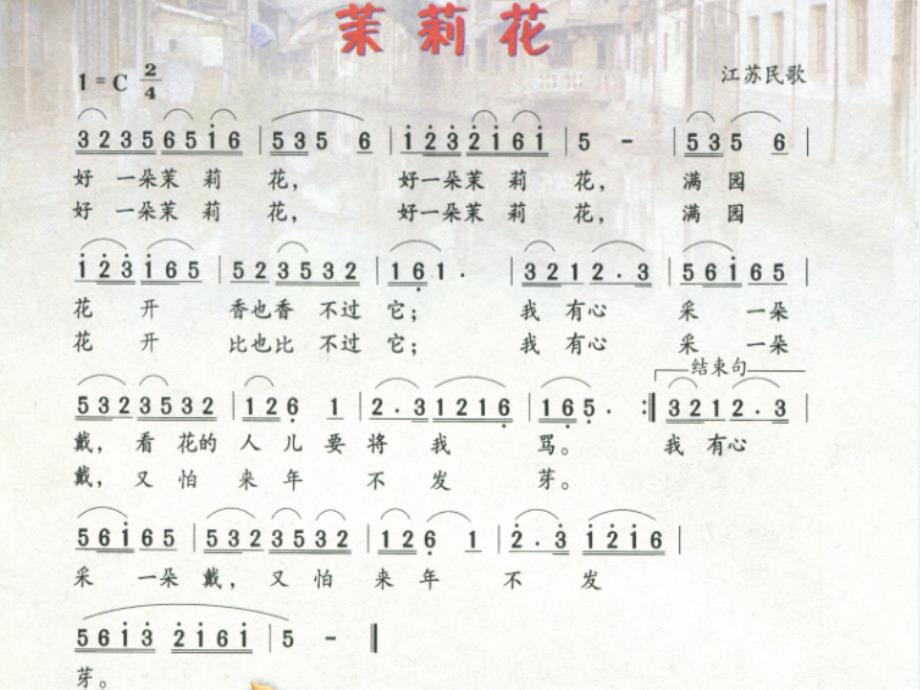 茉莉花
1=C 2/4 江苏民歌
3235 65i̇6 | 535 6 | i̇2̇3̇2̇i̇6i̇ | 5 - | 535 6 |
好 一朵茉 莉 花， 好一朵茉 莉 花， 满 园
好 一朵茉 莉 花， 好一朵茉 莉 花， 满 园
i̇2̇3̇ i̇65 | 523532 | 16̣1· | 3212·3 | 56i̇65 |
花 开 香也香 不过 它； 我 有心 采 一朵
花 开 比也比 不过 它； 我 有心 采 一朵
结束句
5323532 | 126̣ 1 | 2·3 1216̣ | 16̣5̣· :‖ 3212·3 |
戴，看 花的 人 儿 要 将 我 骂。 我 有心
戴，又 怕 来 年 不 发 芽。
56i̇65 | 5323532 | 126̣ 1 | 2̇·3̇ i̇2̇i̇6 |
采 一朵 戴，又 怕 来 年 不 发
56i̇3̇ 2̇i̇6i̇ | 5 - ‖
芽。